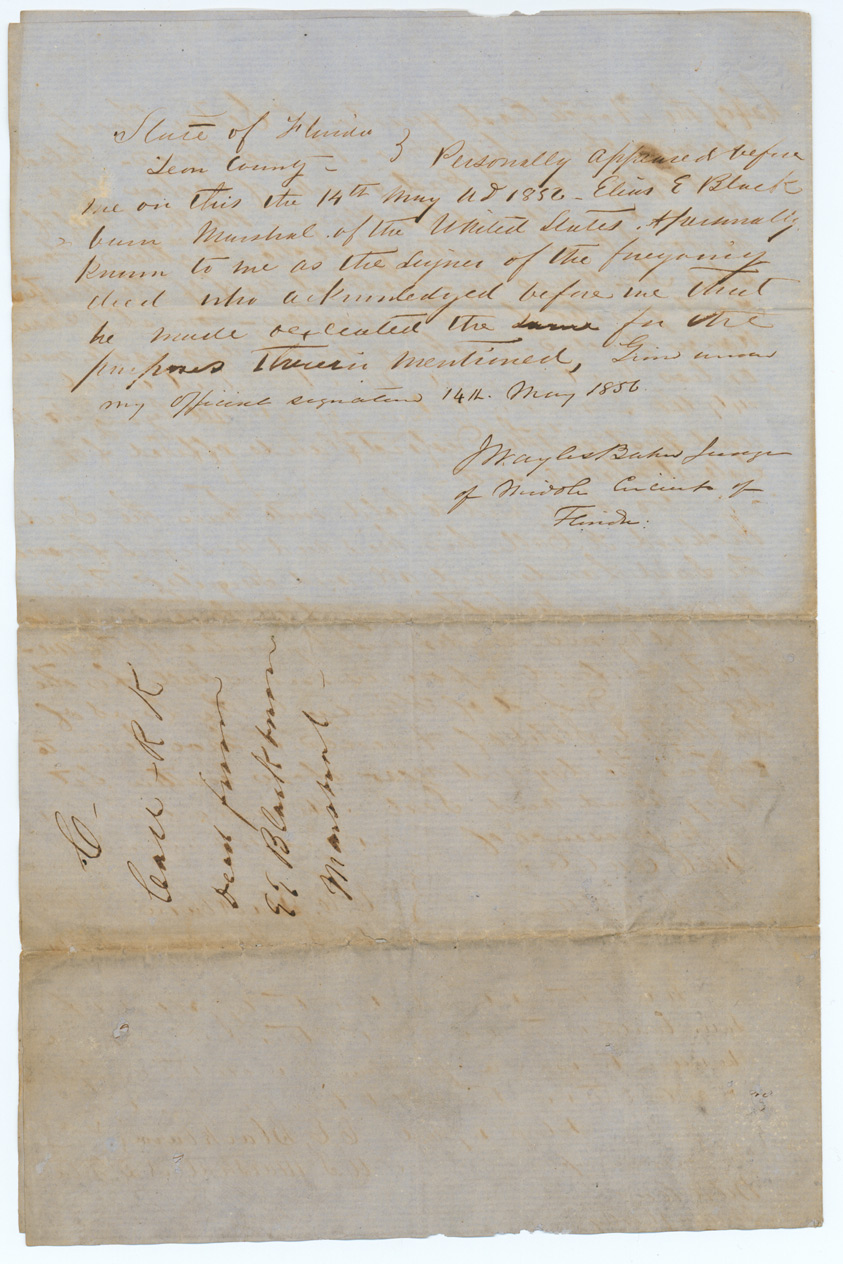 State of Florida }
Leon County - Personally appeared before
me on this the 14th May AD 1856 - Elias E Black
burn Marshal of the United States. & personally
known to me as the signer of the foregoing
deed who acknowledged before me that
he made & executed the same for the
purposes therein mentioned, Given under
my official signature 14th. May 1856.
J Wayles Baker Judge
of Middle Circuit of
Florida.
C -
Call & R K
Deed from
E E Blackburn
Marshal -